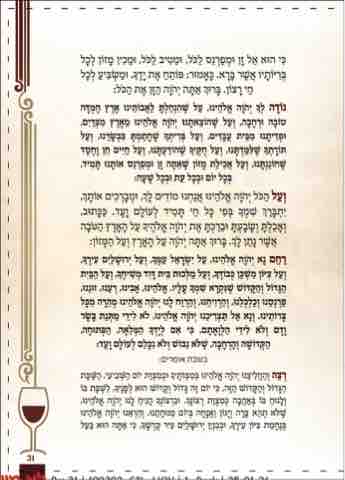 כִּי הוּא אֵל זָן וּמְפַרְנֵס לַכֹּל, וּמֵטִיב לַכֹּל, וּמֵכִין מָזוֹן לְכָל
בְּרִיּוֹתָיו אֲשֶׁר בָּרָא. כָּאָמוּר: פּוֹתֵחַ אֶת יָדֶךָ, וּמַשְׂבִּיעַ לְכָל
חַי רָצוֹן. בָּרוּךְ אַתָּה יְהֹוָה הַזָּן אֶת הַכֹּל:
נוֹדֶה לְּךָ יְהֹוָה אֱלֹהֵינוּ, עַל שֶׁהִנְחַלְתָּ לַאֲבוֹתֵינוּ אֶרֶץ חֶמְדָּה
טוֹבָה וּרְחָבָה, וְעַל שֶׁהוֹצֵאתָנוּ יְהֹוָה אֱלֹהֵינוּ מֵאֶרֶץ מִצְרַיִם,
וּפְדִיתָנוּ מִבֵּית עֲבָדִים, וְעַל בְּרִיתְךָ שֶׁחָתַמְתָּ בִּבְשָׂרֵנוּ, וְעַל
תּוֹרָתְךָ שֶׁלִּמַּדְתָּנוּ, וְעַל חֻקֶּיךָ שֶׁהוֹדַעְתָּנוּ, וְעַל חַיִּים חֵן וָחֶסֶד
שֶׁחוֹנַנְתָּנוּ, וְעַל אֲכִילַת מָזוֹן שָׁאַתָּה זָן וּמְפַרְנֵס אוֹתָנוּ תָּמִיד,
בְּכָל יוֹם וּבְכָל עֵת וּבְכָל שָׁעָה:
וְעַל הַכֹּל יְהֹוָה אֱלֹהֵינוּ אֲנַחְנוּ מוֹדִים לָךְ, וּמְבָרְכִים אוֹתָךְ,
יִתְבָּרַךְ שִׁמְךָ בְּפִי כָּל חַי תָּמִיד לְעוֹלָם וָעֶד. כַּכָּתוּב,
וְאָכַלְתָּ וְשָׂבָעְתָּ וּבֵרַכְתָּ אֶת יְהֹוָה אֱלֹהֶיךָ עַל הָאָרֶץ הַטֹּבָה
אֲשֶׁר נָתַן לָךְ. בָּרוּךְ אַתָּה יְהֹוָה עַל הָאָרֶץ וְעַל הַמָּזוֹן:
רַחֵם נָא יְהֹוָה אֱלֹהֵינוּ, עַל יִשְׂרָאֵל עַמֶּךָ, וְעַל יְרוּשָׁלַיִם עִירֶךָ,
וְעַל צִיּוֹן מִשְׁכַּן כְּבוֹדֶךָ, וְעַל מַלְכוּת בֵּית דָּוִד מְשִׁיחֶךָ, וְעַל הַבַּיִת
הַגָּדוֹל וְהַקָּדוֹשׁ שֶׁנִּקְרָא שִׁמְךָ עָלָיו. אֱלֹהֵינוּ, אָבִינוּ, רְעֵנוּ, זוּנֵנוּ,
פַּרְנְסֵנוּ וְכַלְכְּלֵנוּ, וְהַרְוִיחֵנוּ, וְהַרְוַח לָנוּ יְהֹוָה אֱלֹהֵינוּ מְהֵרָה מִכָּל
צָרוֹתֵינוּ. וְנָא אַל תַּצְרִיכֵנוּ יְהֹוָה אֱלֹהֵינוּ, לֹא לִידֵי מַתְּנַת בָּשָׂר
וָדָם וְלֹא לִידֵי הַלְוָאָתָם, כִּי אִם לְיָדְךָ הַמְּלֵאָה, הַפְּתוּחָה,
הַקְּדוֹשָׁה וְהָרְחָבָה, שֶׁלֹּא נֵבוֹשׁ וְלֹא נִכָּלֵם לְעוֹלָם וָעֶד:
בשבת אומרים:
רְצֵה וְהַחֲלִיצֵנוּ יְהֹוָה אֱלֹהֵינוּ בְּמִצְוֹתֶיךָ וּבְמִצְוַת יוֹם הַשְּׁבִיעִי, הַשַּׁבָּת
הַגָּדוֹל וְהַקָּדוֹשׁ הַזֶּה. כִּי יוֹם זֶה גָּדוֹל וְקָדוֹשׁ הוּא לְפָנֶיךָ, לִשְׁבָּת בּוֹ
וְלָנוּחַ בּוֹ בְּאַהֲבָה כְּמִצְוַת רְצוֹנֶךָ. וּבִרְצוֹנְךָ הָנִיחַ לָנוּ יְהֹוָה אֱלֹהֵינוּ,
שֶׁלֹּא תְהֵא צָרָה וְיָגוֹן וַאֲנָחָה בְּיוֹם מְנוּחָתֵנוּ. וְהַרְאֵנוּ יְהֹוָה אֱלֹהֵינוּ
בְּנֶחָמַת צִיּוֹן עִירֶךָ, וּבְבִנְיַן יְרוּשָׁלַיִם עִיר קָדְשֶׁךָ, כִּי אַתָּה הוּא בַּעַל
31